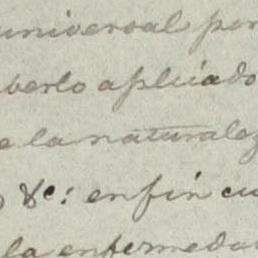 universal por
berlo aplicado
e la naturalez
&c: en fin cu
la enfermedad